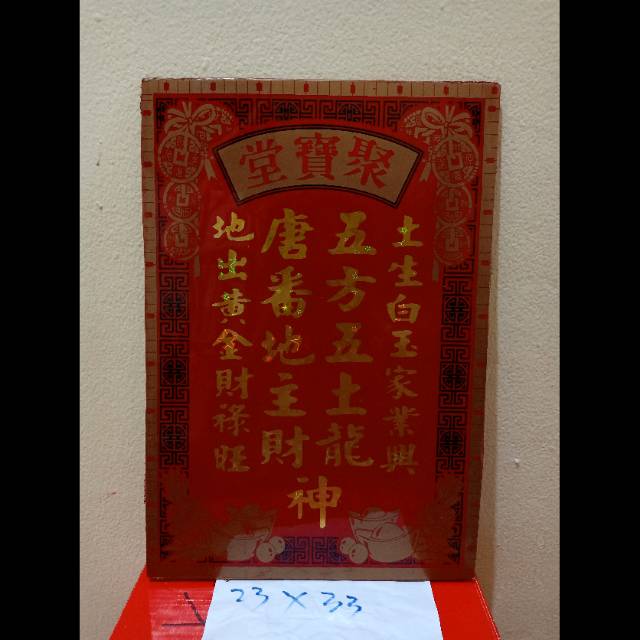 聚寶堂
土生白玉家業興
五方五土龍
唐番地主財
神
地出黃金財祿旺
23 x 33